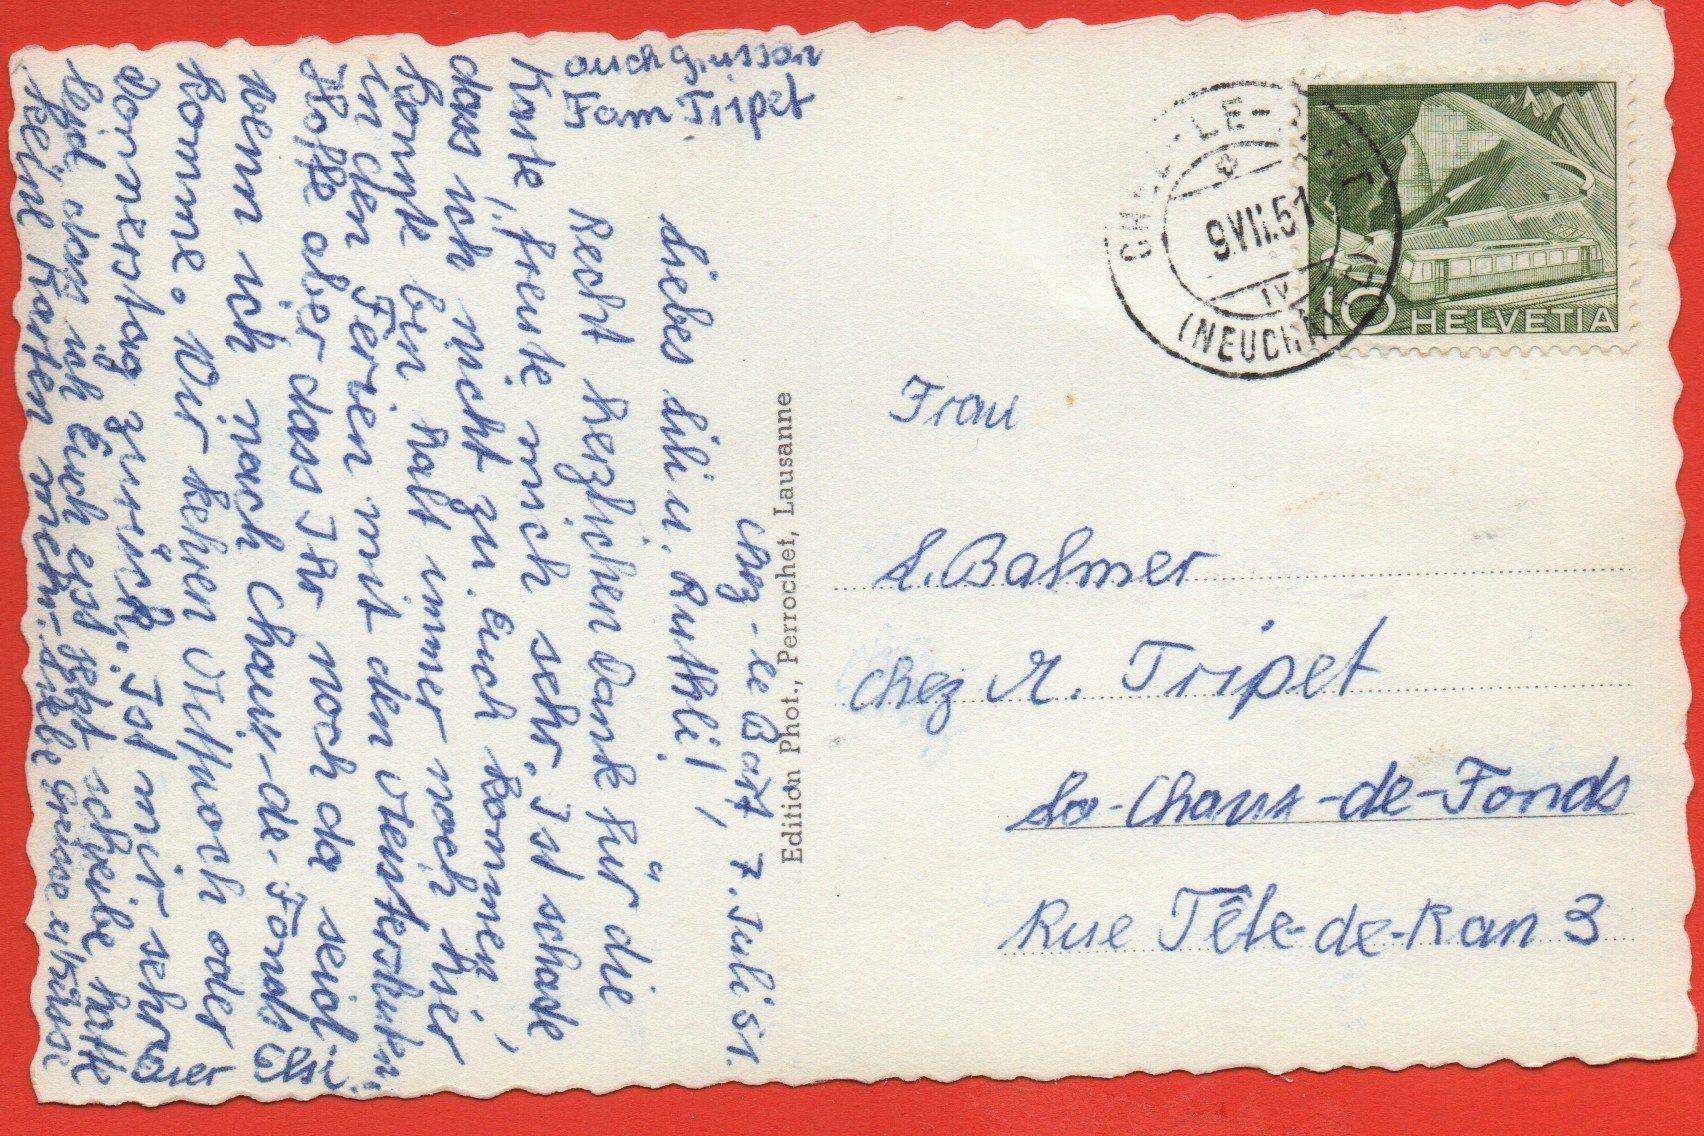 Chez-le Bart 7. Juli 51.
Liebes Lili u. Ruthli!
Recht herzlichen Dank für die
Karte, freute mich sehr. Ist schade
dass ich nicht zu Euch kommen
konnte bin halt immer noch hier
in den Ferien mit den
Hoffe aber dass Ihr noch da seid,
wenn ich nach Chaux-de-Fonds
komme. Wir kehren Mittwoch oder
Donnerstag zurück. Ist mir sehr
leid dass ich Euch erst jetzt schreibe hatte
keine Karten mehr. Liebe Grüsse u. Küsse
Euer Elsi
auch Grüsse von
Fam Tripet
Edition Phot., Perrochet, Lausanne
Frau
L. Balmer
chez R. Tripet
La-Chaux-de-Fonds
Rue Tête-de-Ran 3
CHEZ-LE-BART
9.VII.51
(NEUCHÂTEL)
10 HELVETIA